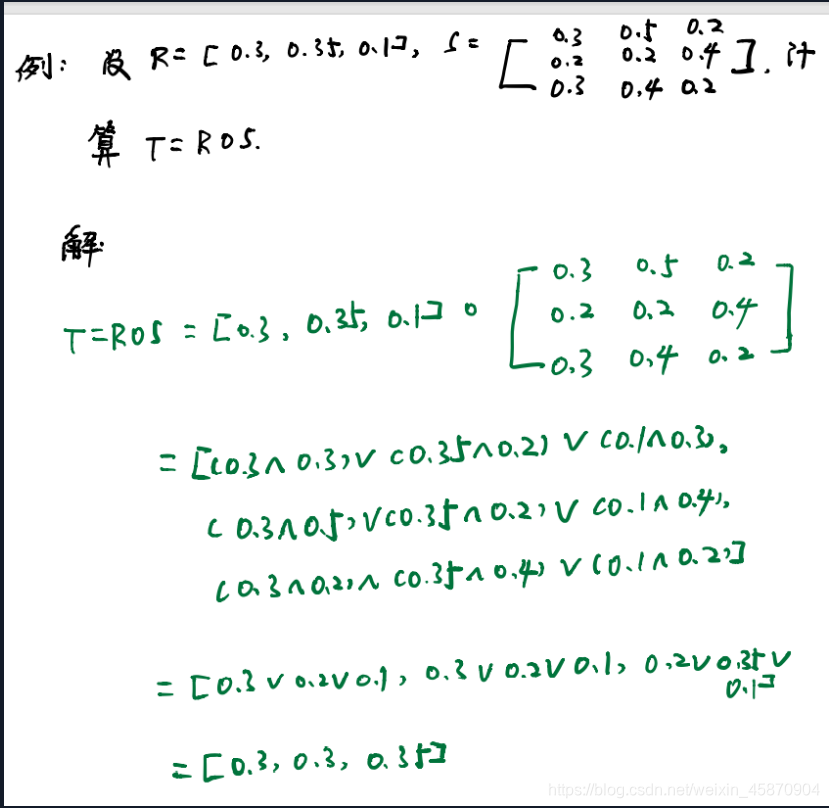 例: 设 R = [0.3, 0.35, 0.1], S = [ 0.3 0.5 0.2
0.2 0.2 0.4
0.3 0.4 0.2 ]. 计
算 T = R O S.
解:
T = R O S = [0.3, 0.35, 0.1] o [ 0.3 0.5 0.2
0.2 0.2 0.4
0.3 0.4 0.2 ]
= [(0.3 ∧ 0.3) ∨ (0.35 ∧ 0.2) ∨ (0.1 ∧ 0.3),
(0.3 ∧ 0.5) ∨ (0.35 ∧ 0.2) ∨ (0.1 ∧ 0.4),
(0.3 ∧ 0.2) ∧ (0.35 ∧ 0.4) ∨ (0.1 ∧ 0.2)]
= [0.3 ∨ 0.2 ∨ 0.1, 0.3 ∨ 0.2 ∨ 0.1, 0.2 ∨ 0.35 ∨
0.1]
= [0.3, 0.3, 0.35]
https://blog.csdn.net/weixin_45870904